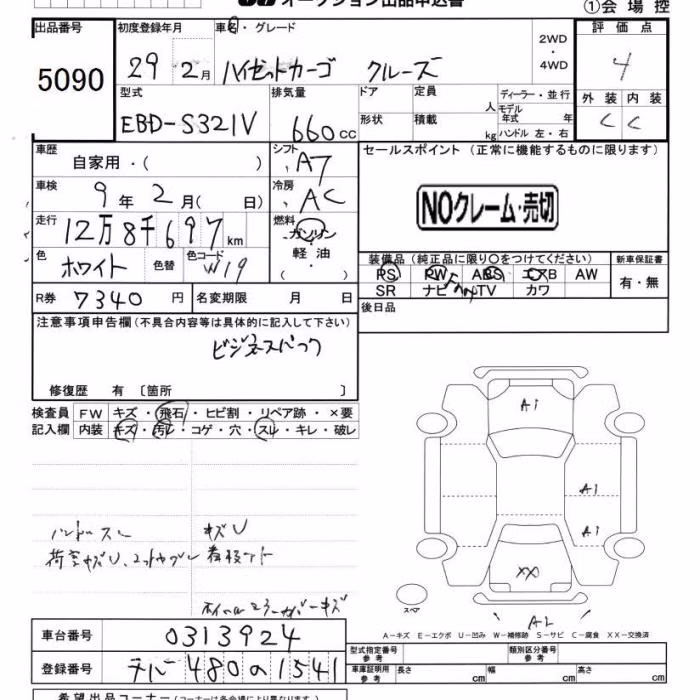 オークション出品申込書
①会場控
出品番号 5090
初度登録年月 29 2月
車名・グレード ハイゼットカーゴ クルーズ
2WD・4WD
評価点 4
外装 C 内装 C
型式 EBD-S321V
排気量 660cc
ドア 形状
定員 人 積載 kg
ディーラー・並行
モデル年式 年
ハンドル 左・右
車歴 自家用・( )
シフト A7
セールスポイント (正常に機能するものに限ります)
NOクレーム・売切
車検 9年 2月 (日)
冷房 AC
走行 12万8千697km
燃料 ガソリン 軽油 ・( )
色 ホワイト 色替 色コード W19
装備品 (純正品に限り〇をつけてください)
PS PW ABS エアB AW
SR ナビ TV カワ
新車保証書 有・無
R券 7340円
名変期限 月 日
後日品
注意事項申告欄(不具合内容等は具体的に記入して下さい)
ビジネスパック
修復歴 有 〔箇所 〕
検査員記入欄
FW キズ・飛石・ヒビ割・リペア跡・×要
内装 キズ・汚レ・コゲ・穴・スレ・キレ・破レ
A1
A1
A1
XX
スペア
A2
A-キズ E-エクボ U-凹み W-補修跡 S-サビ C-腐食 XX-交換済
車台番号 0313924
登録番号 480 の 1541
型式指定番号 参考
類別区分番号 参考
車庫証明用 参考 長さ cm 幅 cm 高さ cm
希望出品コーナー(コーナーは各会場により異なります)